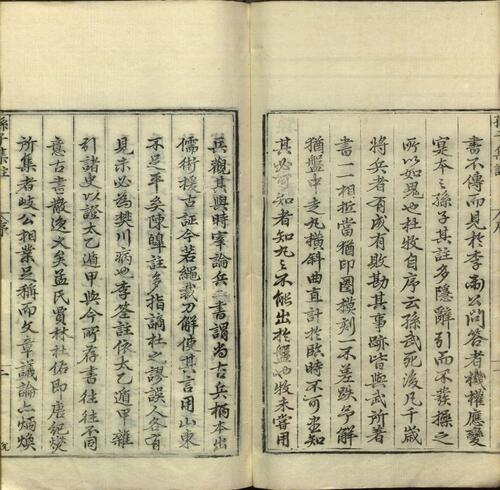 書不傳而見於李衛公問答者機權應變
寔本之孫子其註多隱辭引而不發操之
所以如鬼也杜牧自序云孫武死後凡千歲
將兵者有成有敗勘其事跡皆與武所著
書一一相抵當猶印圈模刻一不差跌予解
猶盤中走丸橫斜曲直計於臨時不可盡知
其必可知者知丸之不能出於盤也牧未嘗用
兵觀其與時宰論兵二書謂尚古兵柄本出
儒術援古証今若繩裁刀解使其言用山東
不足平矣陳皞註多指謫杜之謬誤人各有
見未必為樊川病也李筌註依太乙遁甲雜
引諸史以證太乙遁甲與今所存書往往不同
意古書散逸久矣孟氏賈林杜佑即唐紀燮
所集者岐公相業足稱而文章議論亦炳煥
孫子集註
序
二